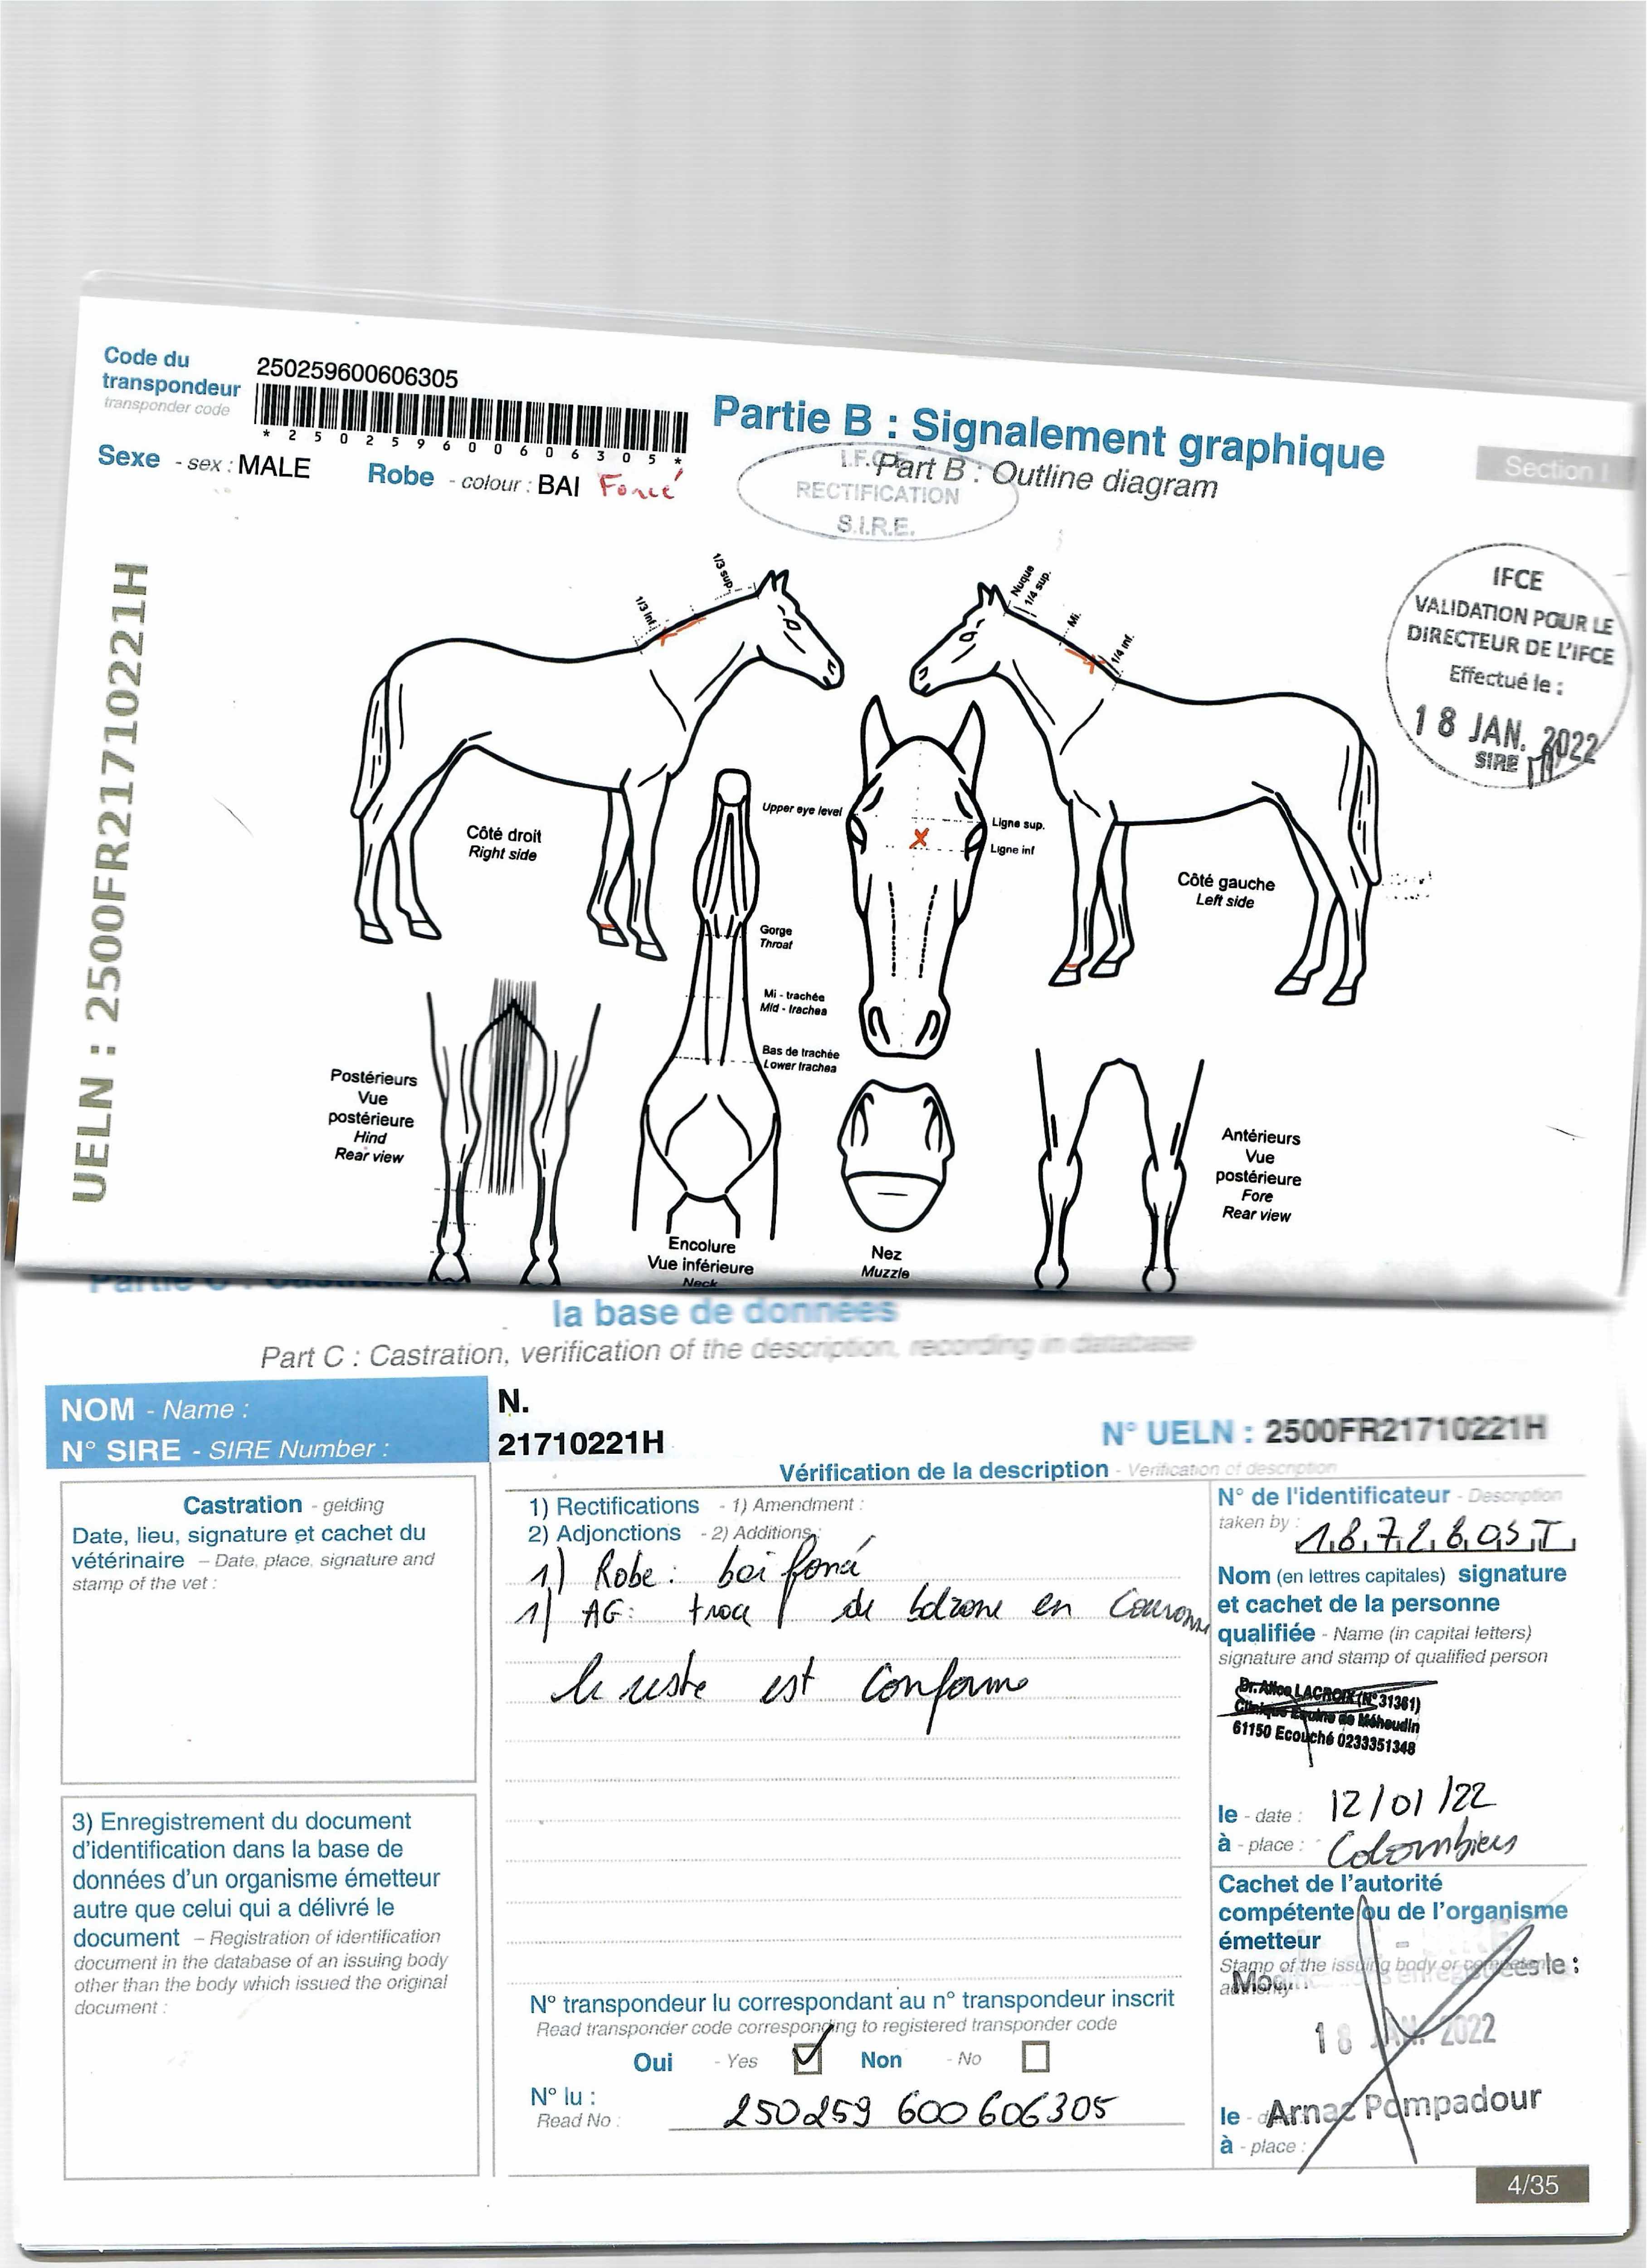 Code du
transpondeur
transponder code
250259600606305
* 2 5 0 2 5 9 6 0 0 6 0 6 3 0 5 *
Sexe - sex : MALE
Robe - colour : BAI Foncé
Partie B : Signalement graphique
Part B : Outline diagram
Section I
RECTIFICATION
S.I.R.E.
UELN : 2500FR21710221H
IFCE
VALIDATION POUR LE
DIRECTEUR DE L'IFCE
Effectué le :
18 JAN. 2022
SIRE
1/3 sup.
1/3 inf.
Nuque
1/4 sup.
Mi.
1/4 inf.
Côté droit
Right side
Upper eye level
Ligne sup.
Ligne inf
Côté gauche
Left side
Gorge
Throat
Mi - trachée
Mid - trachea
Bas de trachée
Lower trachea
Postérieurs
Vue
postérieure
Hind
Rear view
Encolure
Vue inférieure
Neck
Nez
Muzzle
Antérieurs
Vue
postérieure
Fore
Rear view
la base de données
Part C : Castration, verification of the description, recording in database
NOM - Name :
N.
N° SIRE - SIRE Number :
21710221H
N° UELN : 2500FR21710221H
Vérification de la description - Verification of description
Castration - gelding
Date, lieu, signature et cachet du
vétérinaire – Date, place, signature and
stamp of the vet :
1) Rectifications - 1) Amendment :
2) Adjonctions - 2) Additions :
1) Robe : bai foncé
1) AG : trace de balzane en couronne
le reste est conforme
N° de l'identificateur - Description
taken by :
Nom (en lettres capitales) signature
et cachet de la personne
qualifiée - Name (in capital letters)
signature and stamp of qualified person
Dr. Alice LACROIX (N° 31361)
Clinique Equine de Méheudin
61150 Ecouché 0233351348
le - date : 12/01/22
à - place : Colombiers
3) Enregistrement du document
d'identification dans la base de
données d'un organisme émetteur
autre que celui qui a délivré le
document – Registration of identification
document in the database of an issuing body
other than the body which issued the original
document :
Cachet de l'autorité
compétente ou de l'organisme
émetteur
Stamp of the issuing body or competent
authority
18 JAN. 2022
N° transpondeur lu correspondant au n° transpondeur inscrit
Read transponder code corresponding to registered transponder code
Oui - Yes Non - No
N° lu :
Read No :
250259 600606305
le - Arnac Pompadour
à - place :
4/35